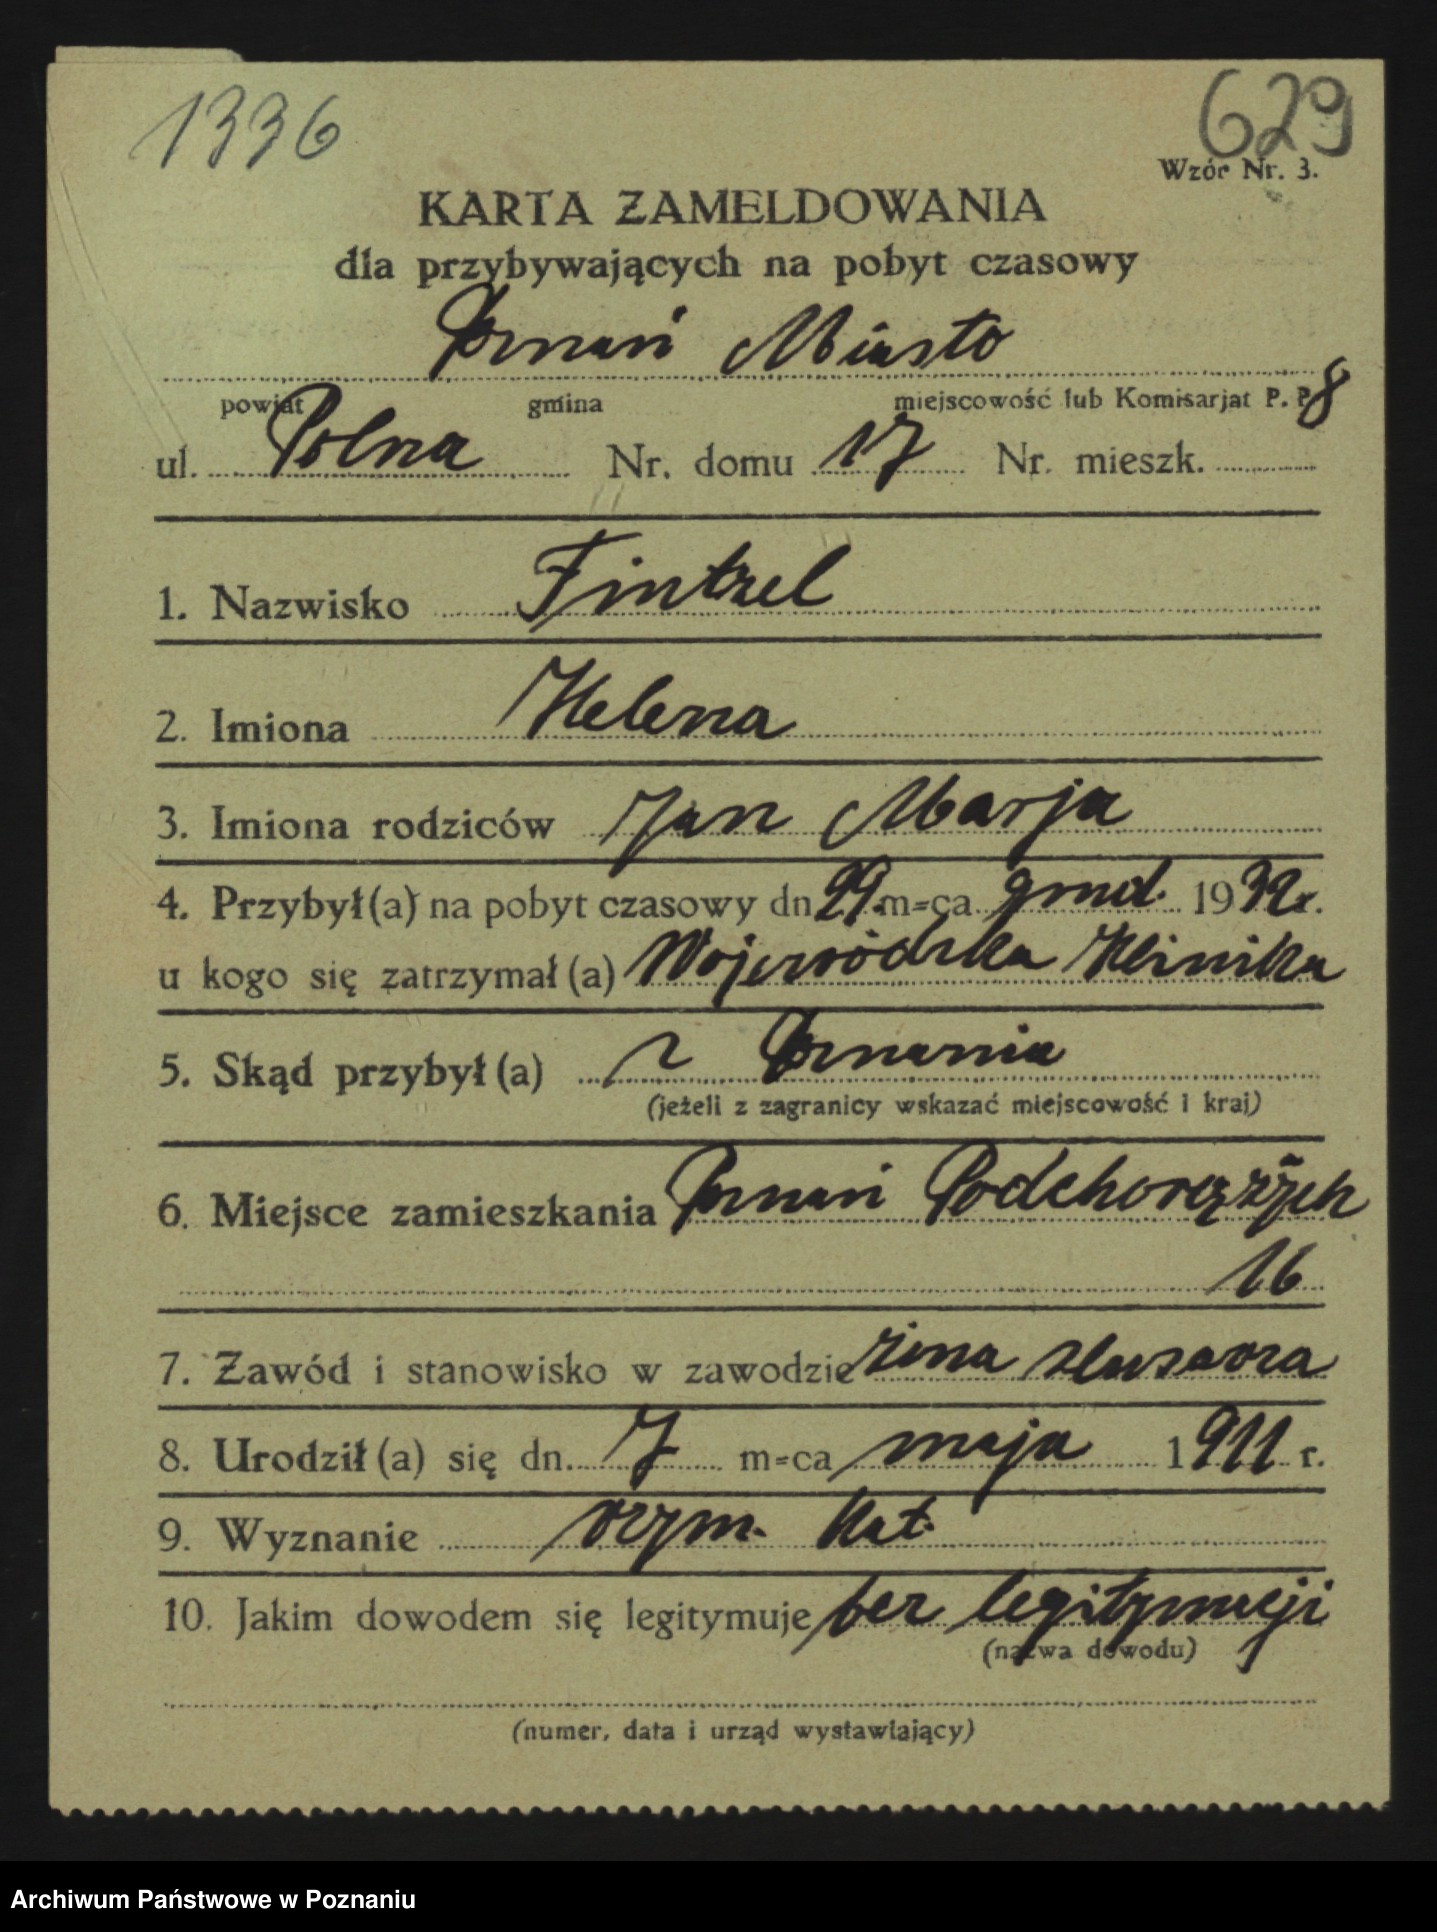 1336
629
Wzór Nr. 3.
KARTA ZAMELDOWANIA
dla przybywających na pobyt czasowy
Poznań Miasto
powiat gmina miejscowość lub Komisarjat P. P. 8
ul. Polna Nr. domu 17 Nr. mieszk.
1. Nazwisko Fintzel
2. Imiona Helena
3. Imiona rodziców Jan Marja
4. Przybył(a) na pobyt czasowy dn 29. m-ca grud. 1932 r.
u kogo się zatrzymał(a) Wojewódzka Klinika
5. Skąd przybył(a) z Poznania
(jeżeli z zagranicy wskazać miejscowość i kraj)
6. Miejsce zamieszkania Poznań Podchorążych
16
7. Zawód i stanowisko w zawodzie żona ślusarza
8. Urodził(a) się dn. 7 m-ca maja 1911 r.
9. Wyznanie rzym. kat.
10. Jakim dowodem się legitymuje bez legitymacji
(nazwa dowodu)
(numer, data i urząd wystawiający)
Archiwum Państwowe w Poznaniu